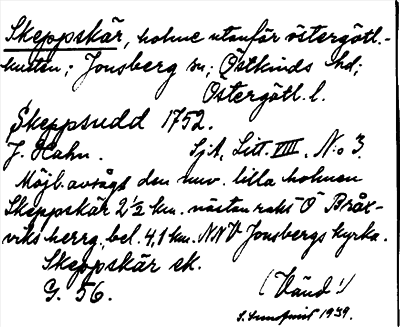 Skeppskär, holme utanför östergötl.-
kusten; Jonsberg sn; Östkinds hd;
Östergötl. l.
Skeppsudd 1752.
J. Hahn. Sjk, Litt. VIII, No 3.
Möjl. avsågs den nuv. lilla holmen
Skeppskär 2 1/2 km. nästan rakt Ö Bråx-
viks herrg., bel. 4,1 km. NNV Jonsbergs kyrka.
Skeppskär ek.
G. 56. (Vänd!)
1939.